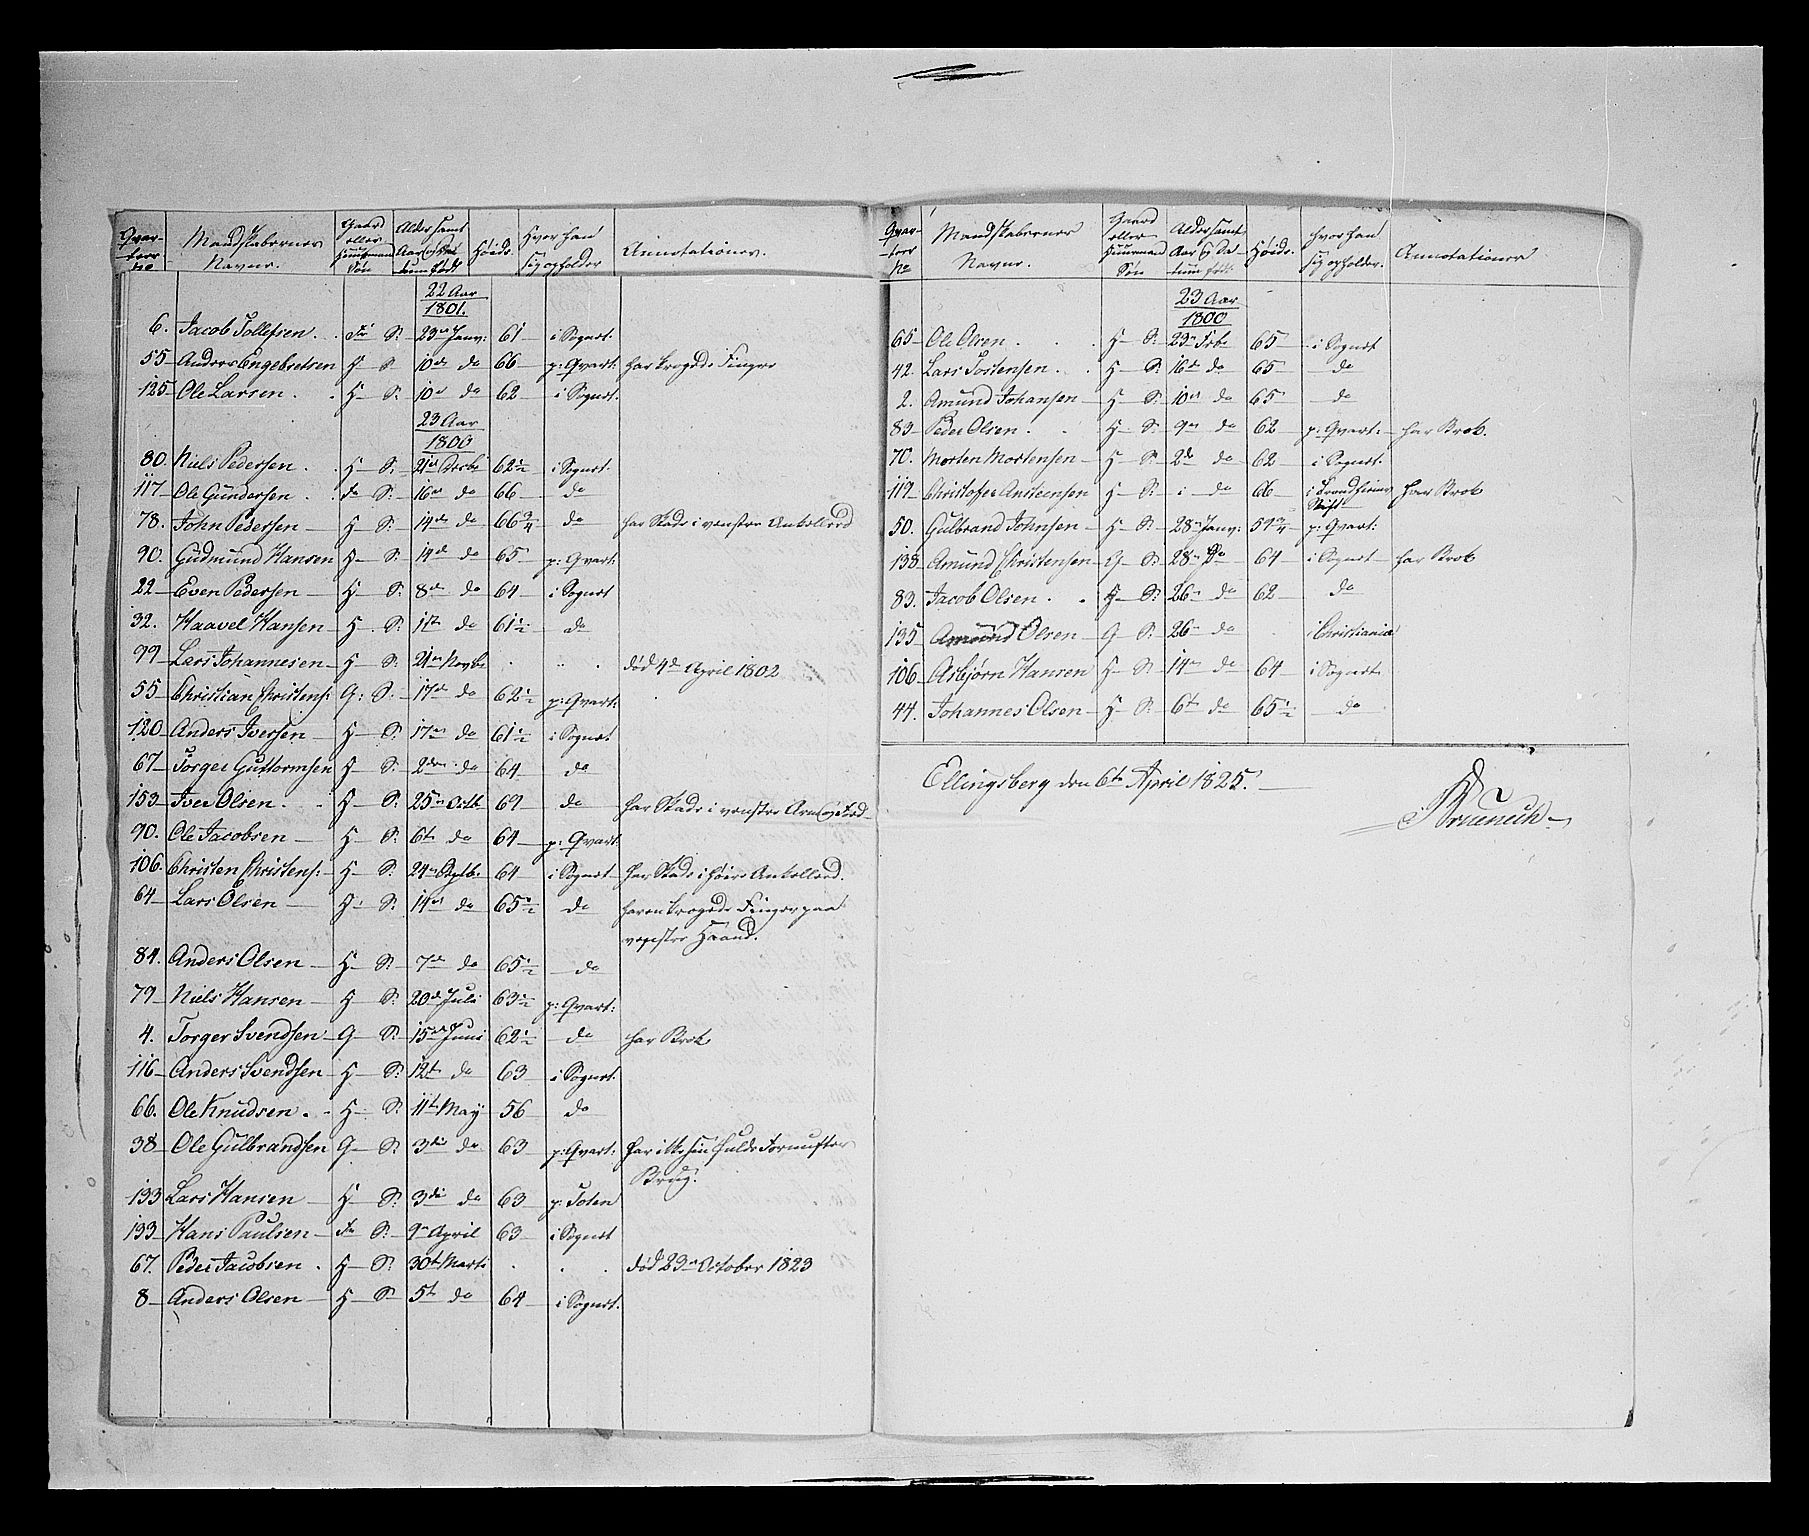 Qvar-
teer
No
Mandskabernes
Navne.
Gaard
eller
Huusmand
Søn
Alder samt
Aar og Da-
tum født
Høide
Hvor han
sig opholder
Annotationer.
22 Aar
1801.
6. Jacob Tollefsen. S. 23 Janv: 61 i Sognet.
55 Anders Engebretsen H S. 10de do 66 p: Qvart: har krogede Finger
125 Ole Larsen. H S. 10d do 62 i Sognet.
23 Aar
1800
80. Niels Pedersen. H S. 21d Decbr 62½ i Sognet.
117 Ole Gundersen. S. 16de do 66 do
78. John Pedersen H S. 14de do 66¾ do har Skade i venstre Ankelleed
90. Gudmund Hansen H S. 14de do 65 p: Qvart:
22 Even Pedersen H S. 8de do 64 i Sognet
32. Haavel Hansen H S. 11te do 61½ do
99 Lars Johannesen H S. 21de Novbr død 4de April 1802
55 Christian Christens: G: S. 17de do 62½ p: Qvart:
120 Anders Iversen H S. 17de do 61½ i Sognet
67 Torger Guttormsen H S. 2den do 64 do
153 Iver Olsen. H S. 25de Octb. 69 do har Skade i venstre Arm og Fod
90. Ole Jacobsen H S. 6te do 64 p: Qvart.
106. Christen Christens: H S. 24de Septb. 64 i Sognet har Skade i høire Ankelleed.
64 Lars Olsen H S. 14de do 65½ do har en krogede Finger paa
venstre Haand.
84. Anders Olsen H S. 7de do 65½ do
79 Niels Hansen H S. 20de Juli 63½ p: Qvart:
4. Torger Svendsen G S. 15de Juni 62½ do har Brok
116 Anders Svendsen H S. 12te do 63 i Sognet.
66. Ole Knudsen. H S. 11te May 56 do
38 Ole Gulbrandsen G S. 3die do 63 p: Qvart: har ikke sin fulde Fornufter
Brug.
133 Lars Hansen H S. 3die do 63 p: Toten
133 Hans Paulsen S. 9de April 63 i Sognet
67. Peder Jacobsen. H S. 30te Marti død 23de October 1823
8 Anders Olsen H S. 5te do 64 i Sognet.
Qvar-
teer
No
Mandskabernes
Navne.
Gaard
eller
Huusmand
Søn
Alder samt
Aar og Da-
tum født.
Høide.
hvor han
sig opholder.
Annotationer
23 Aar
1800
65 Ole Olsen. H S. 23de Febr 65 i Sognet
42. Lars Tostensen. H S. 16de do 65 do
2. Amund Johansen H S. 10de do 65 do
89 Peder Olsen. H S. 9de do 62 p: Qvart: har Brok.
70. Morten Mortensen H S. 2den do 62 i Sognet.
119 Christofer Ansteensen H S. 1 do 66 i Trondhiems
Stift har Brok
50. Gulbrand Johnsen H S. 28de Janv: 59¾ p: Qvart:
138 Amund Christensen G S. 28de do 64 i Sognet har Brok
83. Jacob Olsen. H S. 26de do 62 do
135 Amund Olsen G S. 26de do i Christiania
106 Asbjørn Hansen H S. 14de do 64 i Sognet
44. Johannes Olsen H S. 6te do 65½ do
Ellingsberg den 6te April 1825.